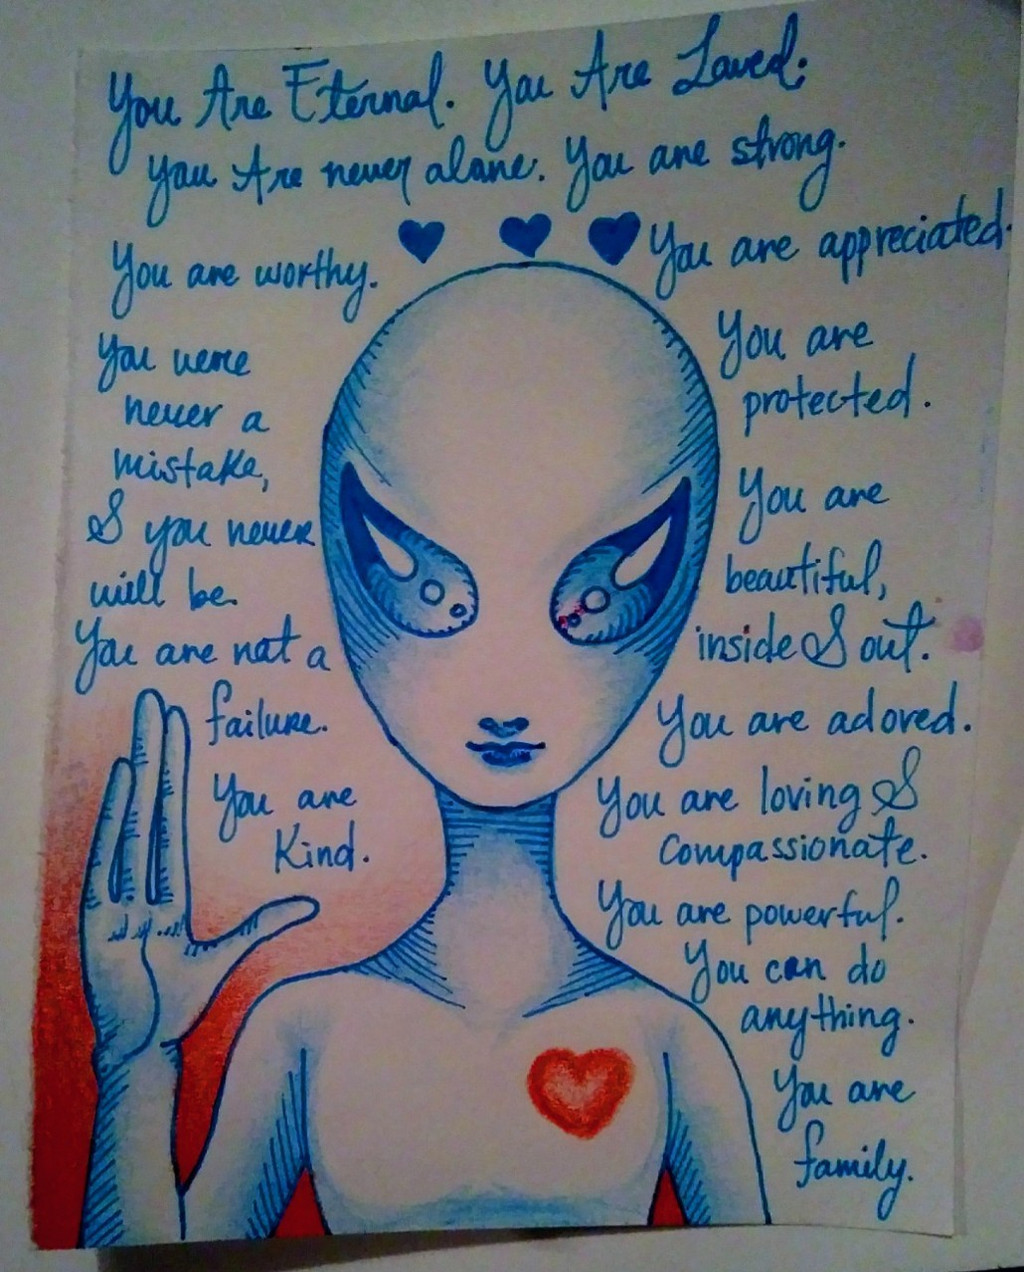 You Are Eternal. You Are Loved.
You Are never alone. You are strong.
You are worthy.
You were
never a
mistake,
& you never
will be.
You are not a
failure.
You are
Kind.
You are appreciated.
You are
protected.
You are
beautiful,
inside & out.
You are adored.
You are loving &
compassionate.
You are powerful.
You can do
anything.
You are
family.